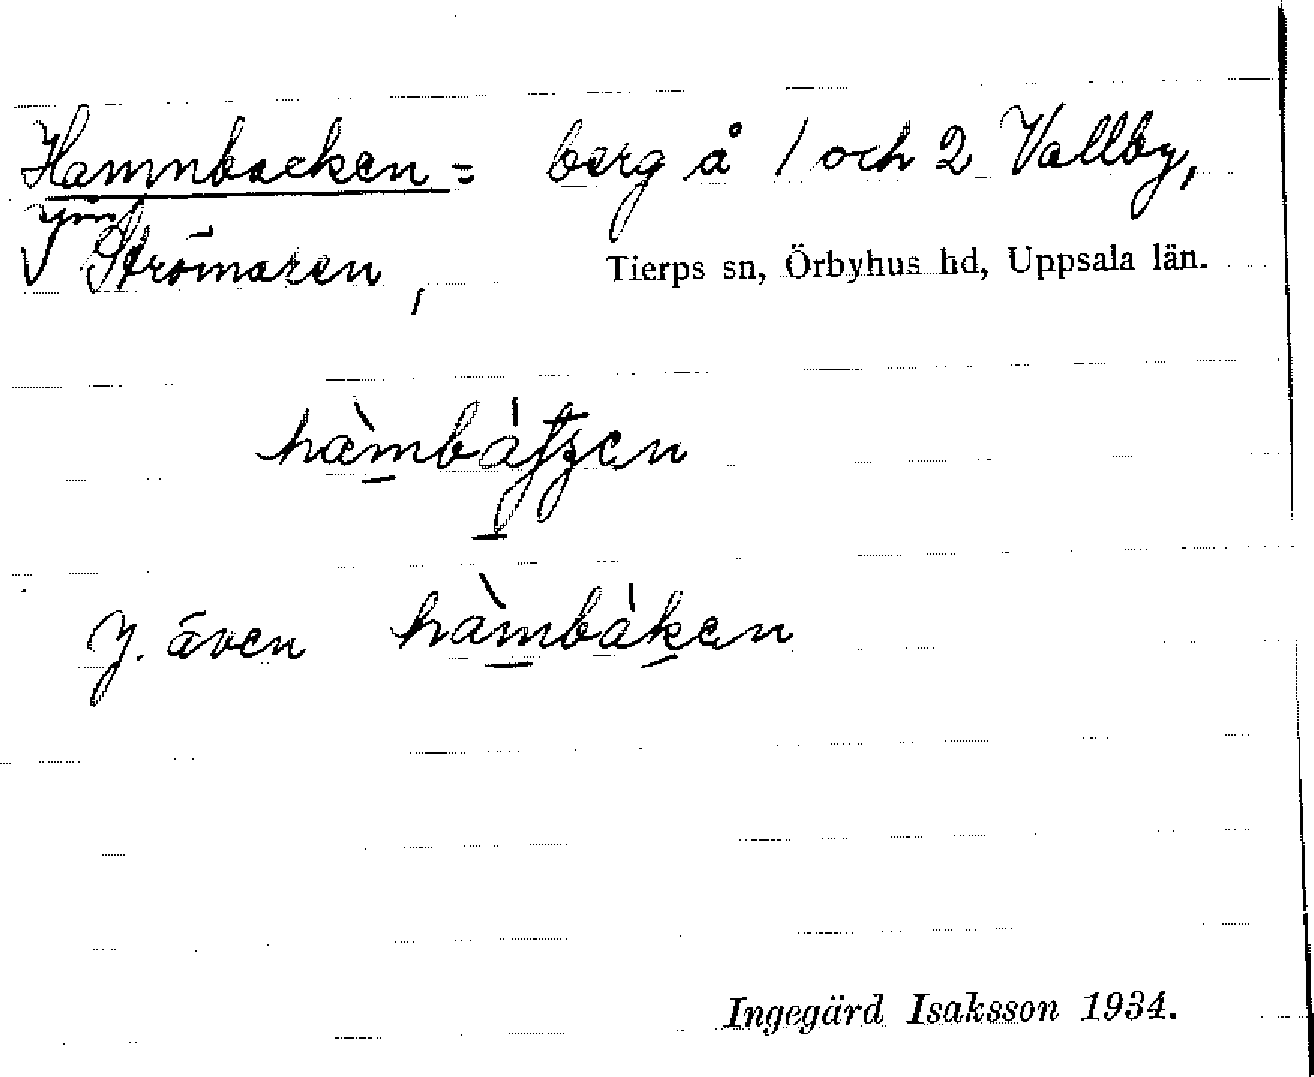 Hamnbacken = berg å 1 och 2 Vallby,
Strömaren, Tierps sn, Örbyhus hd, Uppsala län.
y. även hàmbàken
Ingegärd Isaksson 1934.